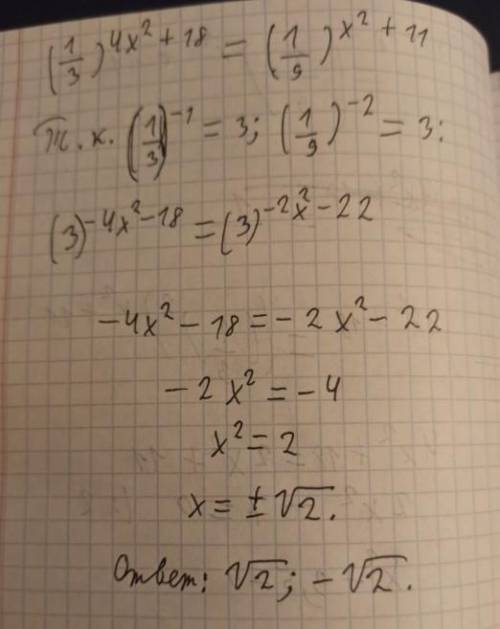 (1/3)^4x²+18 = (1/9)^x²+11
Т.к. (1/3)^-1 = 3; (1/9)^-2 = 3:
(3)^-4x²-18 = (3)^-2x²-22
-4x² - 18 = -2x² - 22
-2x² = -4
x² = 2
x = ±√2.
Ответ: √2; -√2.